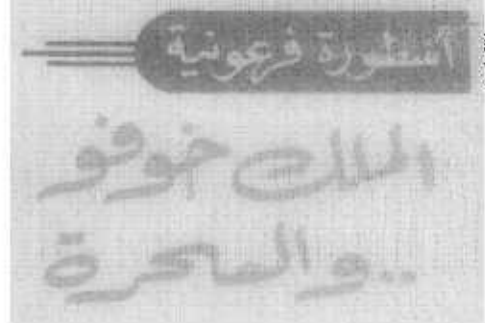 أسطورة فرعونية
الملك خوفو
..والسحرة